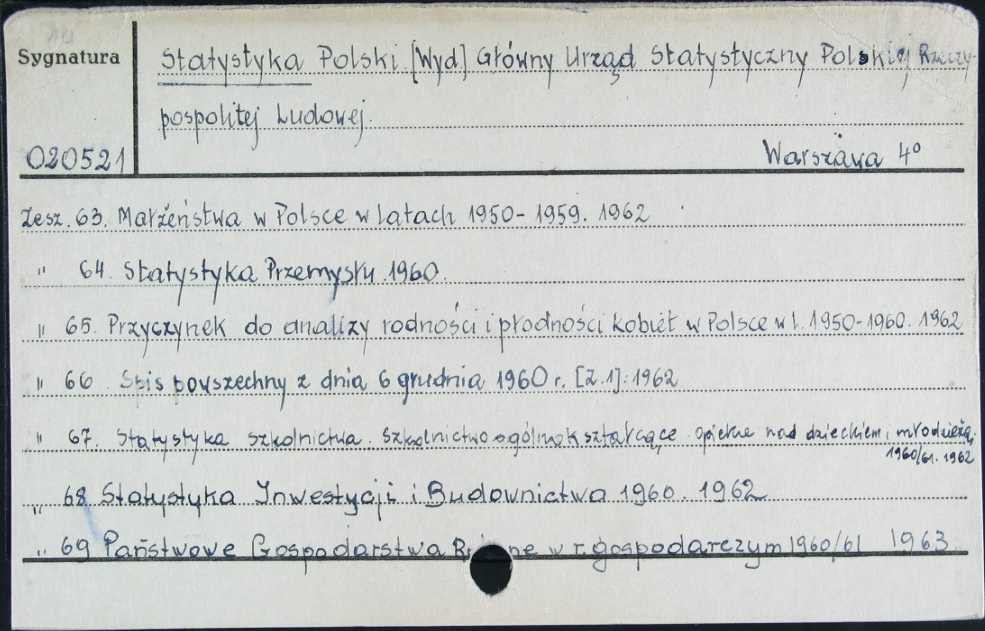 Sygnatura
Statystyka Polski. [Wyd] Główny Urząd Statystyczny Polskiej Rzeczy-
pospolitej Ludowej.
020521
Warszawa 4°
Zesz. 63. Małżeństwa w Polsce w latach 1950-1959. 1962
" 64. Statystyka Przemysłu 1960.
" 65. Przyczynek do analizy rodności i płodności kobiet w Polsce w l. 1950-1960. 1962
" 66. Spis powszechny z dnia 6 grudnia 1960 r. [Z.1]: 1962
" 67. Statystyka szkolnictwa. Szkolnictwo ogólnokształcące. opieka nad dzieckiem i młodzieżą.
1960/61. 1962
" 68 Statystyka Inwestycji i Budownictwa 1960. 1962
" 69 Państwowe Gospodarstwa w r. gospodarczym 1960/61 1963